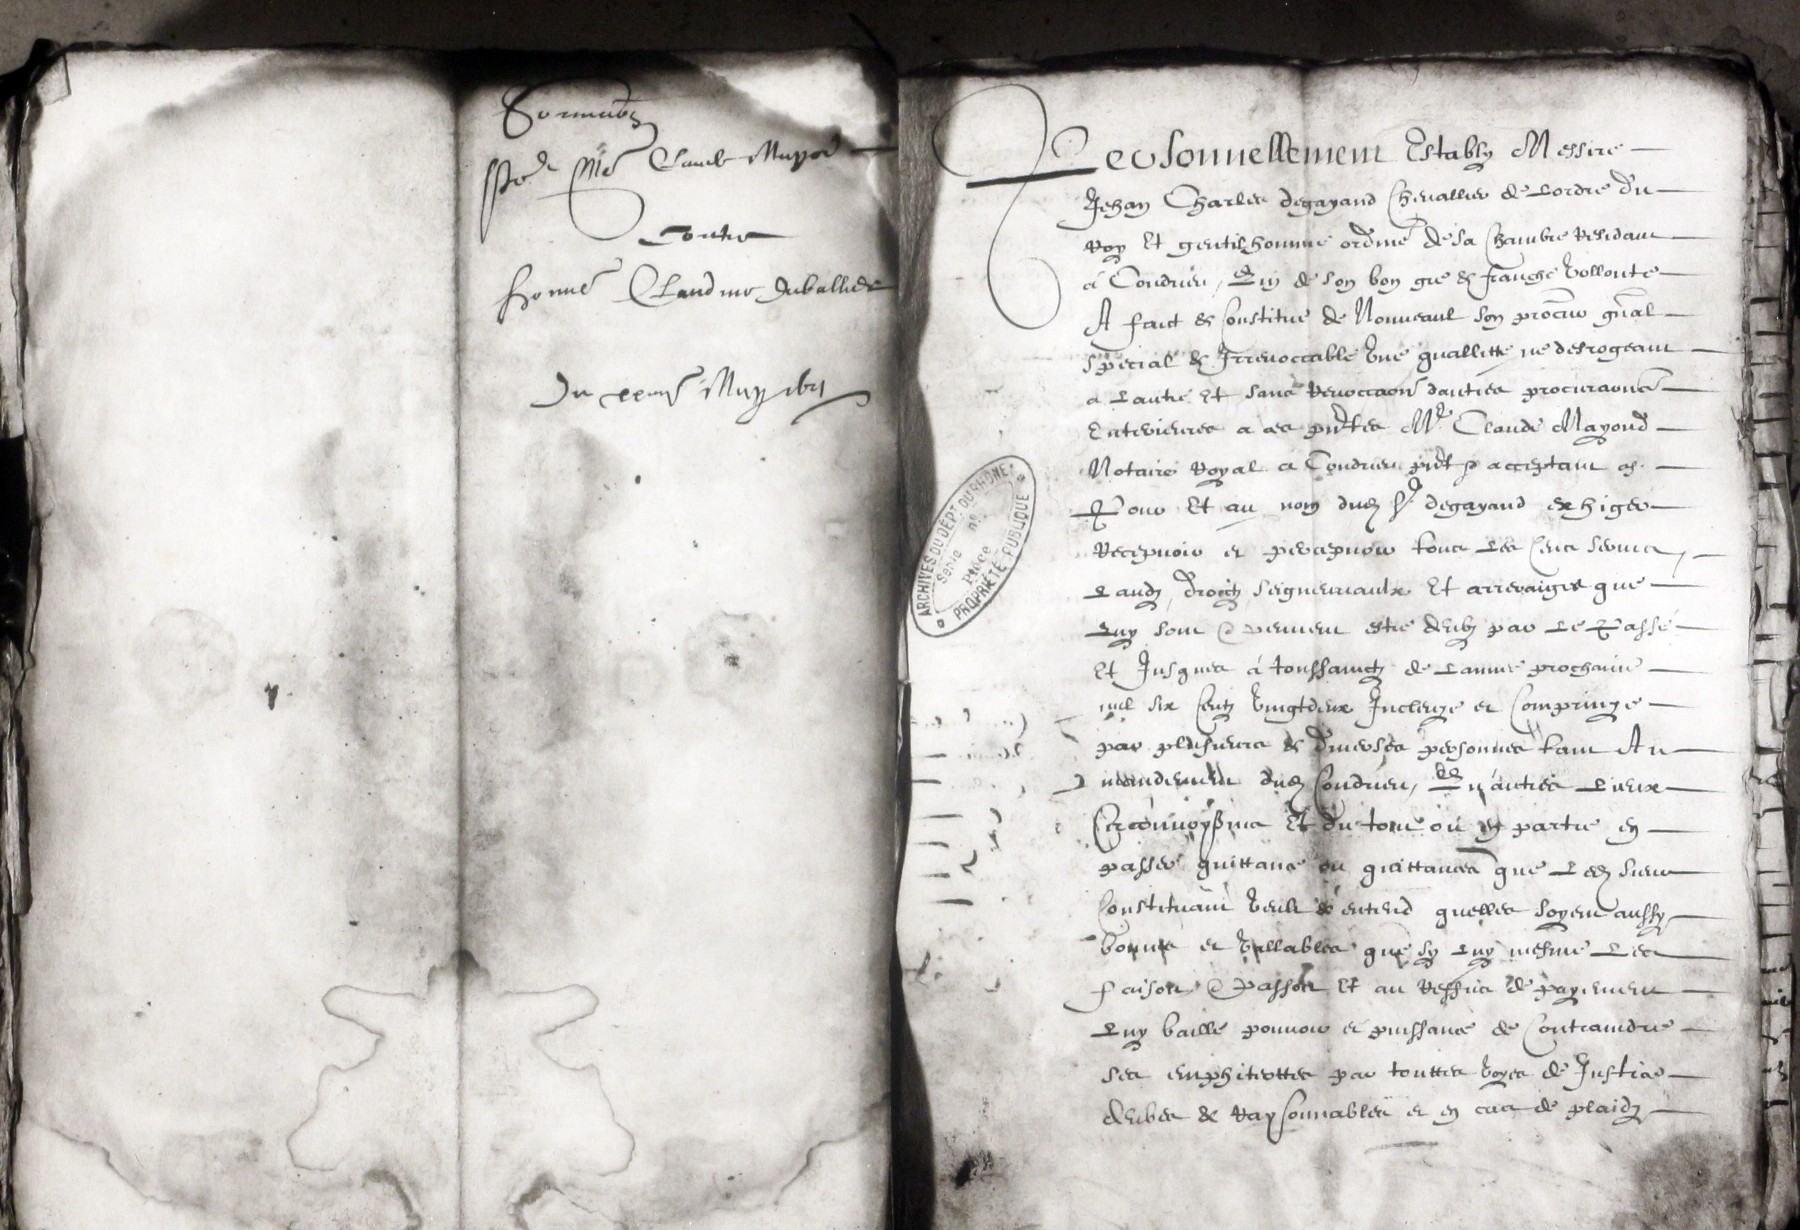 Sommaon
Me Claude Mayod
Contre
honne Claudine
Du May 1621
Personnellement Estably Messire
Jehan Charles degayand Chevallier de Lordre du
Roy Et gentilhomme ordre de sa Chambre Residant
a Condrieu, Qui de son bon gre & franche vollonte
A faict & Constitue de Nouveaul son procur gnal
special & Irrevoccable Une quallitte ne desrogeant
a Lautre Et sans Revoccaon dautres procuraones
Enterieures a ces pntes Me Claude Mayoud
Notaire Royal a Condrieu pnt & acceptant
Pour Et au nom dud Sr degayand exhiger
Recepvoir et percepvoir tous Les Cens servis,
Laudz, droictz seigneuriaulx Et arreraiges que
Luy sont & peuvent estre deubz par Le Passe
Et Jusques a toussainctz de Lannee prochaine
mil six Centz vingtdeux Incluze et Comprinze
par plusieurs & diverses personnes tant Au
mandement dud Condrieu, Qu'autres Lieux
Circonvoysins Et du tout ou en partie en
passer quittance ou quittances que Led sieur
Constituant veult & entend quelles soyent aussy
bonnes et vallables que sy Luy mesme Les
faisoit & passoit Et au Reffus de payement
Luy baille pouvoir et puissance de Contraindre
ses emphiteottes par touttes voyes de Justice
deubes & Raysonnables et en cas de plaidz
ARCHIVES DU DEPT DU RHONE
Serie n°
Pièce
PROPRIÉTÉ PUBLIQUE